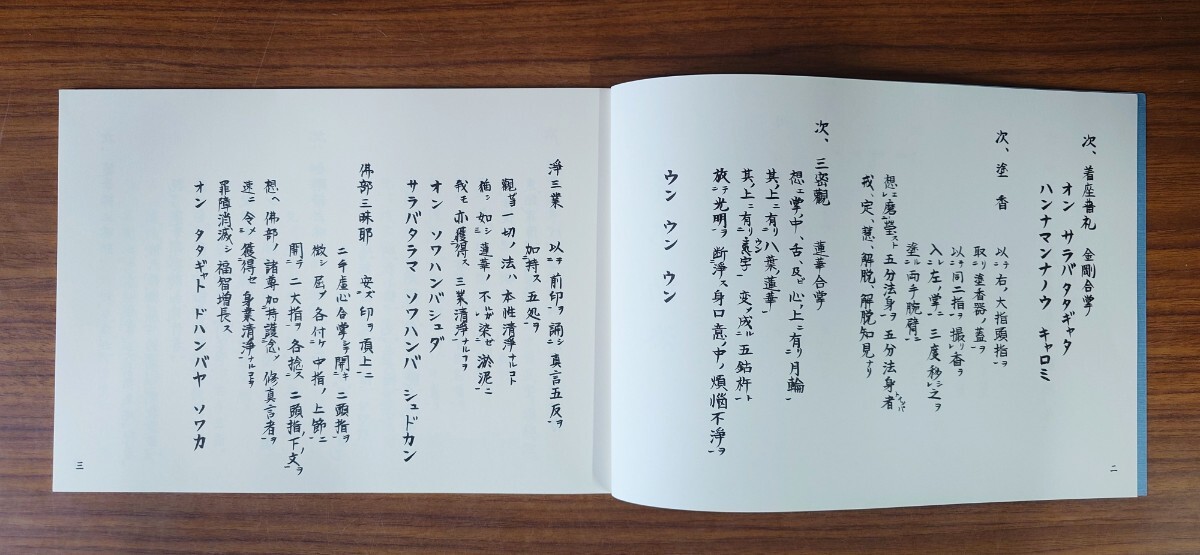 次、着座普礼 金剛合掌
オン サラバタタギャタ
ハンナマンナノウ キャロミ
次、塗香
以テ右ノ大指頭指ヲ
取リ塗香器ノ蓋ヲ
以テ同二指ヲ撮リ香ヲ
入レ左ノ掌ニ 三度移シ之ヲ
塗ル両手腕臂ニ
想ニ磨瑩スト五分法身ヲ 五分法身者トイッパ
戒、定、慧、解脱、解脱知見ナリ
次、三密観 蓮華合掌
想ヱ掌ノ中、舌、及ビ心ノ上ニ有リ月輪
其ノ上ニ有リ八葉ノ蓮華
其ノ上ニ有リ吽字ウン 変ノ成ル五鈷杵ト
放テ光明ヲ 断浄ス身口意ノ中ノ煩悩不浄ヲ
ウン ウン ウン
二
淨三業 以テ前印ヲ誦シ真言五反ヲ
加持ス五処ヲ
観ヱ一切ノ法ハ本性清浄ナルコト
猶シ如シ蓮華ノ不ルガ染セ淤泥ニ
我モ亦獲得ス三業清浄ナルコヲ
オン ソワハンバシュダ
サラバタラマ ソワハンバ シュドカン
佛部三昧耶 安ズ印ヲ頂上ニ
二手虚心合掌シテ開キ二頭指ヲ
微シ屈ノ各付ケ中指ノ上節ニ
開テ二大指ヲ各捻ス二頭指ノ下文ヲ
想ヘ佛部ノ諸尊加持護念ノ修真言者ヲ
速ニ令メ獲得セ身業清浄ナルコヲ
罪障消滅シ福智増長ス
オン タタギャト ドハンバヤ ソワカ
三